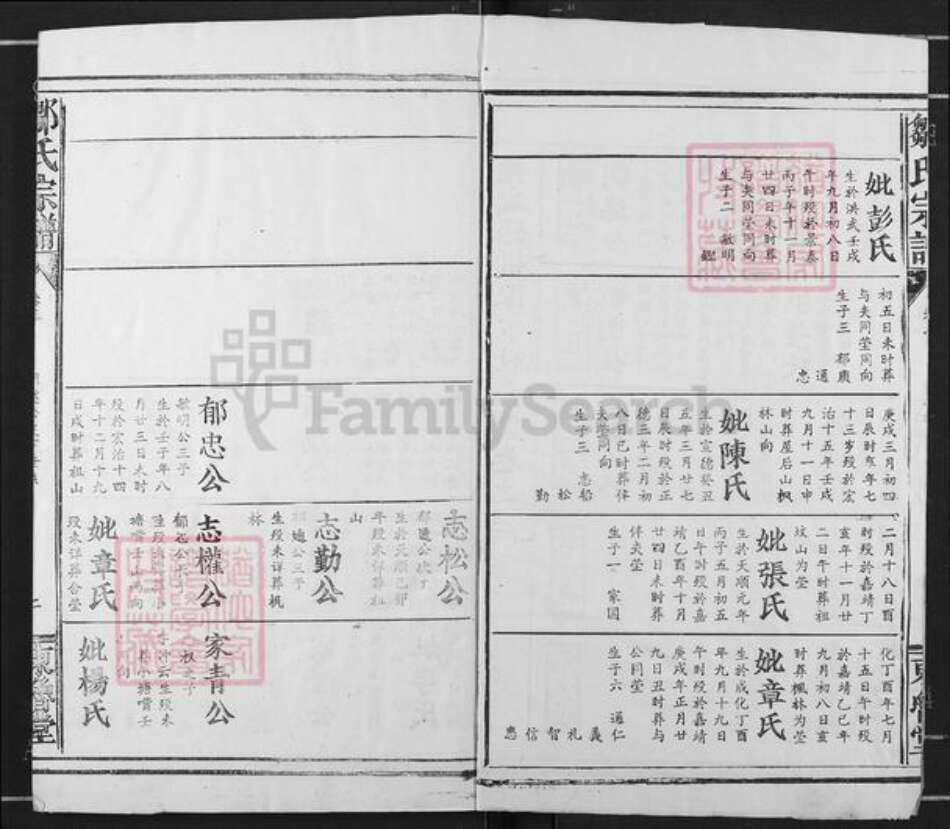 鄒氏宗譜
妣彭氏
生於洪武壬戌
年九月初八日
午時歿於景泰
丙子年十一月
廿四日未時葬
與夫同塋同向
生子二 敏明
鑑
初五日未時葬
与夫同塋同向
生子三 郁廣
通
忠
庚戌三月初四
日辰時年七
十三歲歿於宏
治十五年壬戌
九月十一日申
時葬屋后山楓
林山向
妣陳氏
生於宣德癸丑
五年三月廿七
日辰時歿於正
德三年二月初
八日巳時葬伴
夫塋同向
生子三 志船
松
勤
二月十八日酉
時歿於嘉靖丁
亥年十一月廿
二日午時葬祖
坟山為塋
妣張氏
生於天順元年
丙子五月初五
日午時歿於嘉
靖乙酉年十月
廿四日未時葬
伴夫塋
生子一 家国
化丁酉年七月
十五日午時歿
於嘉靖乙巳年
九月初八日亥
時葬楓林為塋
妣章氏
生於成化丁酉
年九月十九日
午時歿於嘉靖
庚戌年正月廿
九日丑時葬与
公同塋
生子六 通仁
義
礼
智
信
忠
鄒氏宗譜
郁忠公
敏明公三子
生於壬子年八
月廿三日未時
歿於宏治十四
年十二月十九
日戌時葬祖山
志松公
郁通公次子
生於天順己卯
年歿未詳葬祖
山
志勤公
郁通公三子
生歿未詳葬楓
林
志權公
郁忠公
妣章氏
歿未詳葬合塋
家青公
妣楊氏
FamilySearch